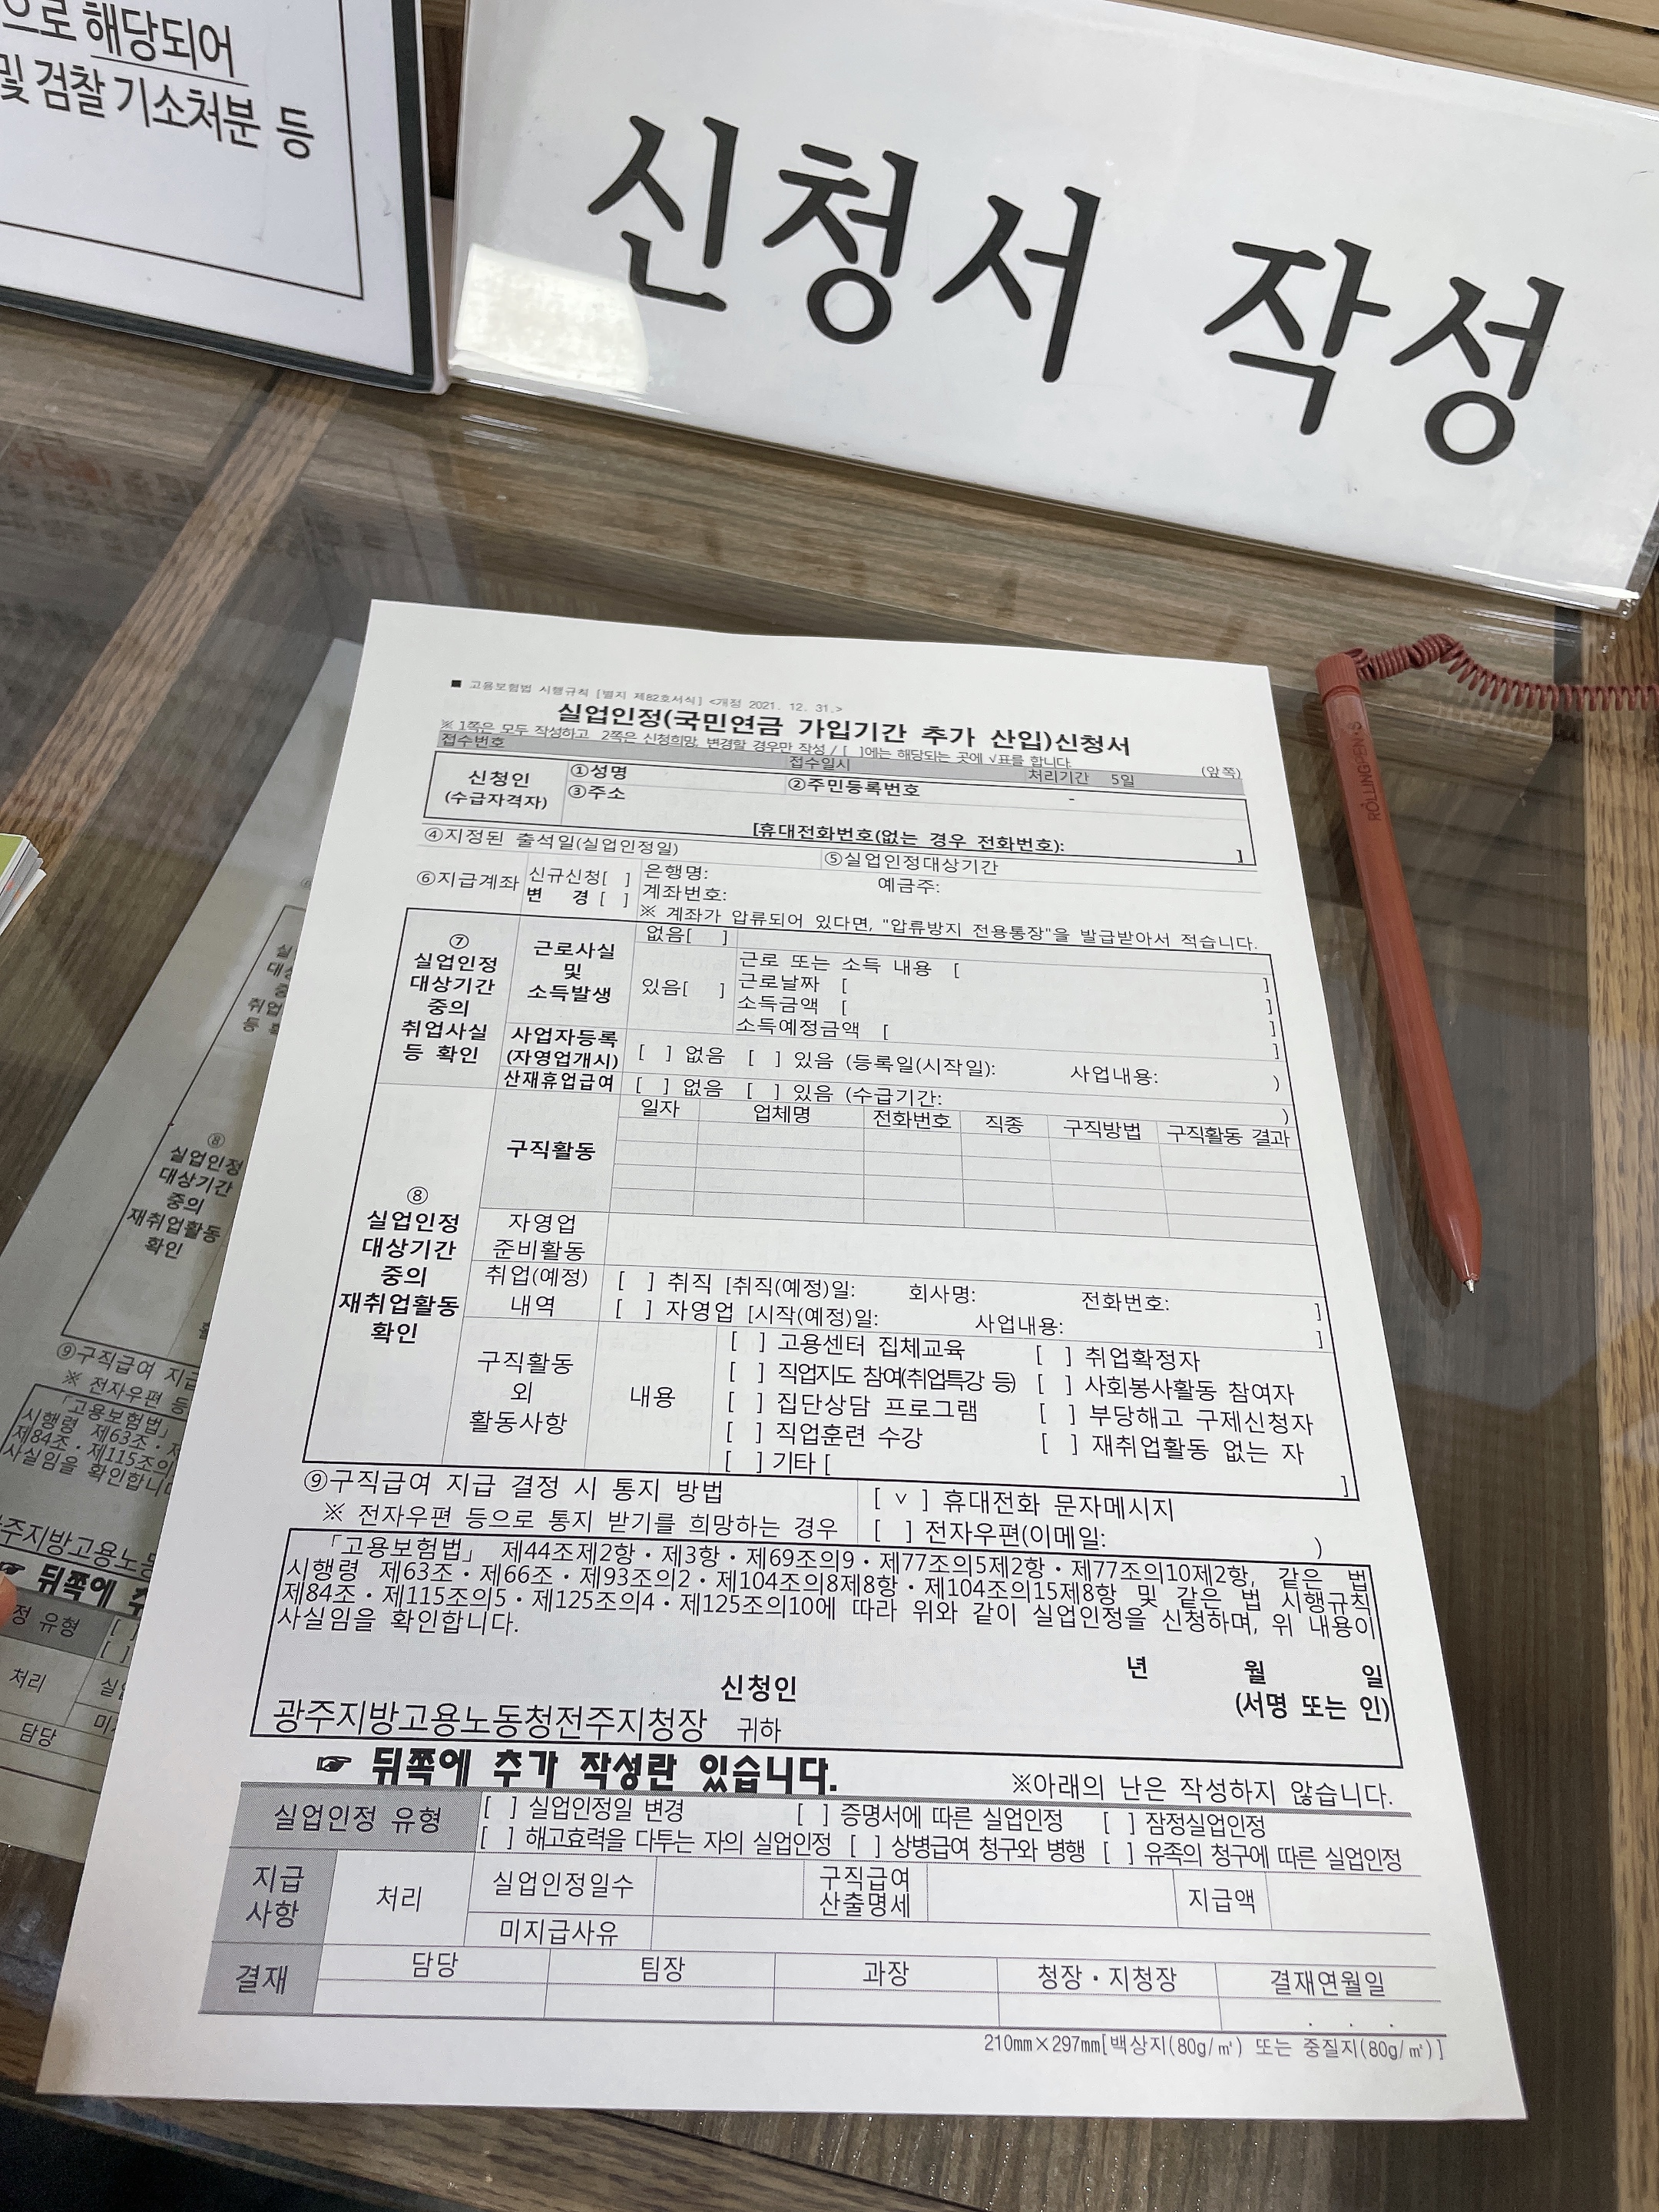 으로 해당되어
및 검찰 기소처분 등
신청서 작성
ROLLINGPEN
■ 고용보험법 시행규칙 [별지 제82호서식] <개정 2021. 12. 31.>
실업인정(국민연금 가입기간 추가 산입)신청서
※ 1쪽은 모두 작성하고 2쪽은 신청희망, 변경할 경우만 작성 / [ ]에는 해당되는 곳에 √표를 합니다.
(앞쪽)
접수번호 접수일시 처리기간 5일
신청인
(수급자격자)
①성명 ②주민등록번호 -
③주소
[휴대전화번호(없는 경우 전화번호): ]
④지정된 출석일(실업인정일) ⑤실업인정대상기간
⑥지급계좌
신규신청[ ]
변 경 [ ]
은행명: 예금주:
계좌번호:
※ 계좌가 압류되어 있다면, "압류방지 전용통장"을 발급받아서 적습니다.
⑦
실업인정
대상기간
중의
취업사실
등 확인
근로사실
및
소득발생
없음[ ]
있음[ ]
근로 또는 소득 내용 [ ]
근로날짜 [ ]
소득금액 [ ]
소득예정금액 [ ]
사업자등록
(자영업개시)
[ ] 없음 [ ] 있음 (등록일(시작일): 사업내용: )
산재휴업급여 [ ] 없음 [ ] 있음 (수급기간: )
⑧
실업인정
대상기간
중의
재취업활동
확인
구직활동
일자 업체명 전화번호 직종 구직방법 구직활동 결과
자영업
준비활동
취업(예정)
내역
[ ] 취직 [취직(예정)일: 회사명: 전화번호: ]
[ ] 자영업 [시작(예정)일: 사업내용: ]
구직활동
외
활동사항
내용
[ ] 고용센터 집체교육 [ ] 취업확정자
[ ] 직업지도 참여(취업특강 등) [ ] 사회봉사활동 참여자
[ ] 집단상담 프로그램 [ ] 부당해고 구제신청자
[ ] 직업훈련 수강 [ ] 재취업활동 없는 자
[ ] 기타 [ ]
⑨구직급여 지급 결정 시 통지 방법
※ 전자우편 등으로 통지 받기를 희망하는 경우
[ v ] 휴대전화 문자메시지
[ ] 전자우편(이메일: )
「고용보험법」 제44조제2항·제3항·제69조의9·제77조의5제2항·제77조의10제2항, 같은 법
시행령 제63조·제66조·제93조의2·제104조의8제8항·제104조의15제8항 및 같은 법 시행규칙
제84조·제115조의5·제125조의4·제125조의10에 따라 위와 같이 실업인정을 신청하며, 위 내용이
사실임을 확인합니다.
년 월 일
신청인 (서명 또는 인)
광주지방고용노동청전주지청장 귀하
☞ 뒤쪽에 추가 작성란 있습니다.
※아래의 난은 작성하지 않습니다.
실업인정 유형
[ ] 실업인정일 변경 [ ] 증명서에 따른 실업인정 [ ] 잠정실업인정
[ ] 해고효력을 다투는 자의 실업인정 [ ] 상병급여 청구와 병행 [ ] 유족의 청구에 따른 실업인정
지급
사항
처리
실업인정일수
구직급여
산출명세
지급액
미지급사유
결재
담당 팀장 과장 청장·지청장 결재연월일
. . .
210mm×297mm[백상지(80g/㎡) 또는 중질지(80g/㎡)]
⑧
실업인정
대상기간
중의
재취업활동
확인
⑨구직급여 지급
※ 전자우편 등
「고용보험법」
시행령 제63조
제84조·제115조의
사실임을 확인합니다
광주지방고용노동
☞ 뒤쪽에 추
정 유형
처리
담당